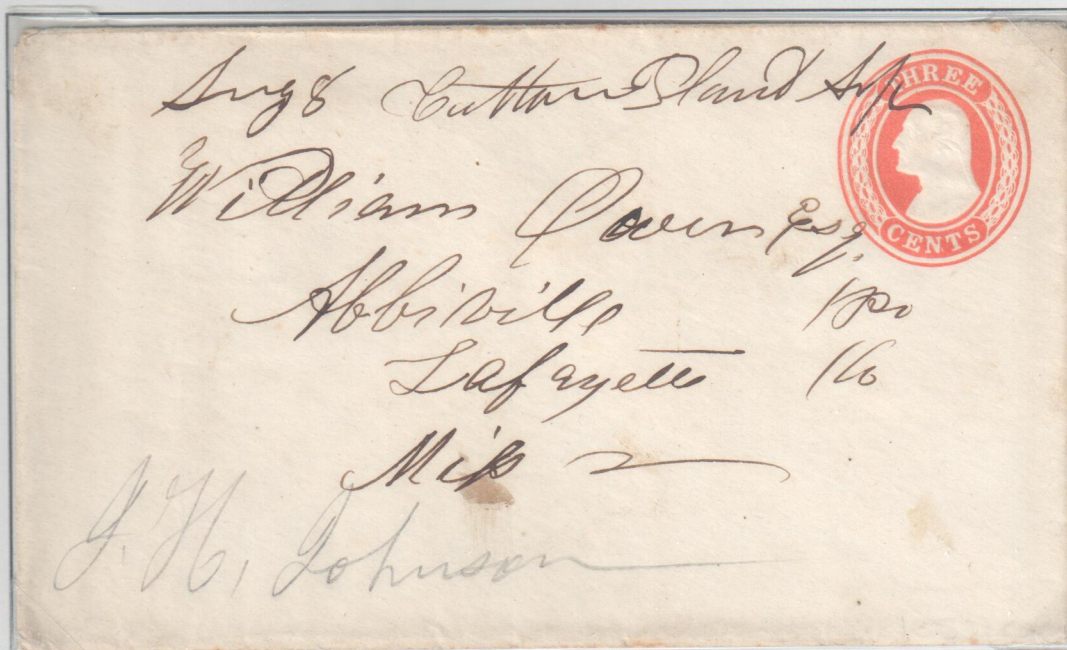 Aug 8 Cutton Bland
THREE
CENTS
William Owen Esq.
Abbiville PO
Lafayette Co
Miss
J. H. Johnson